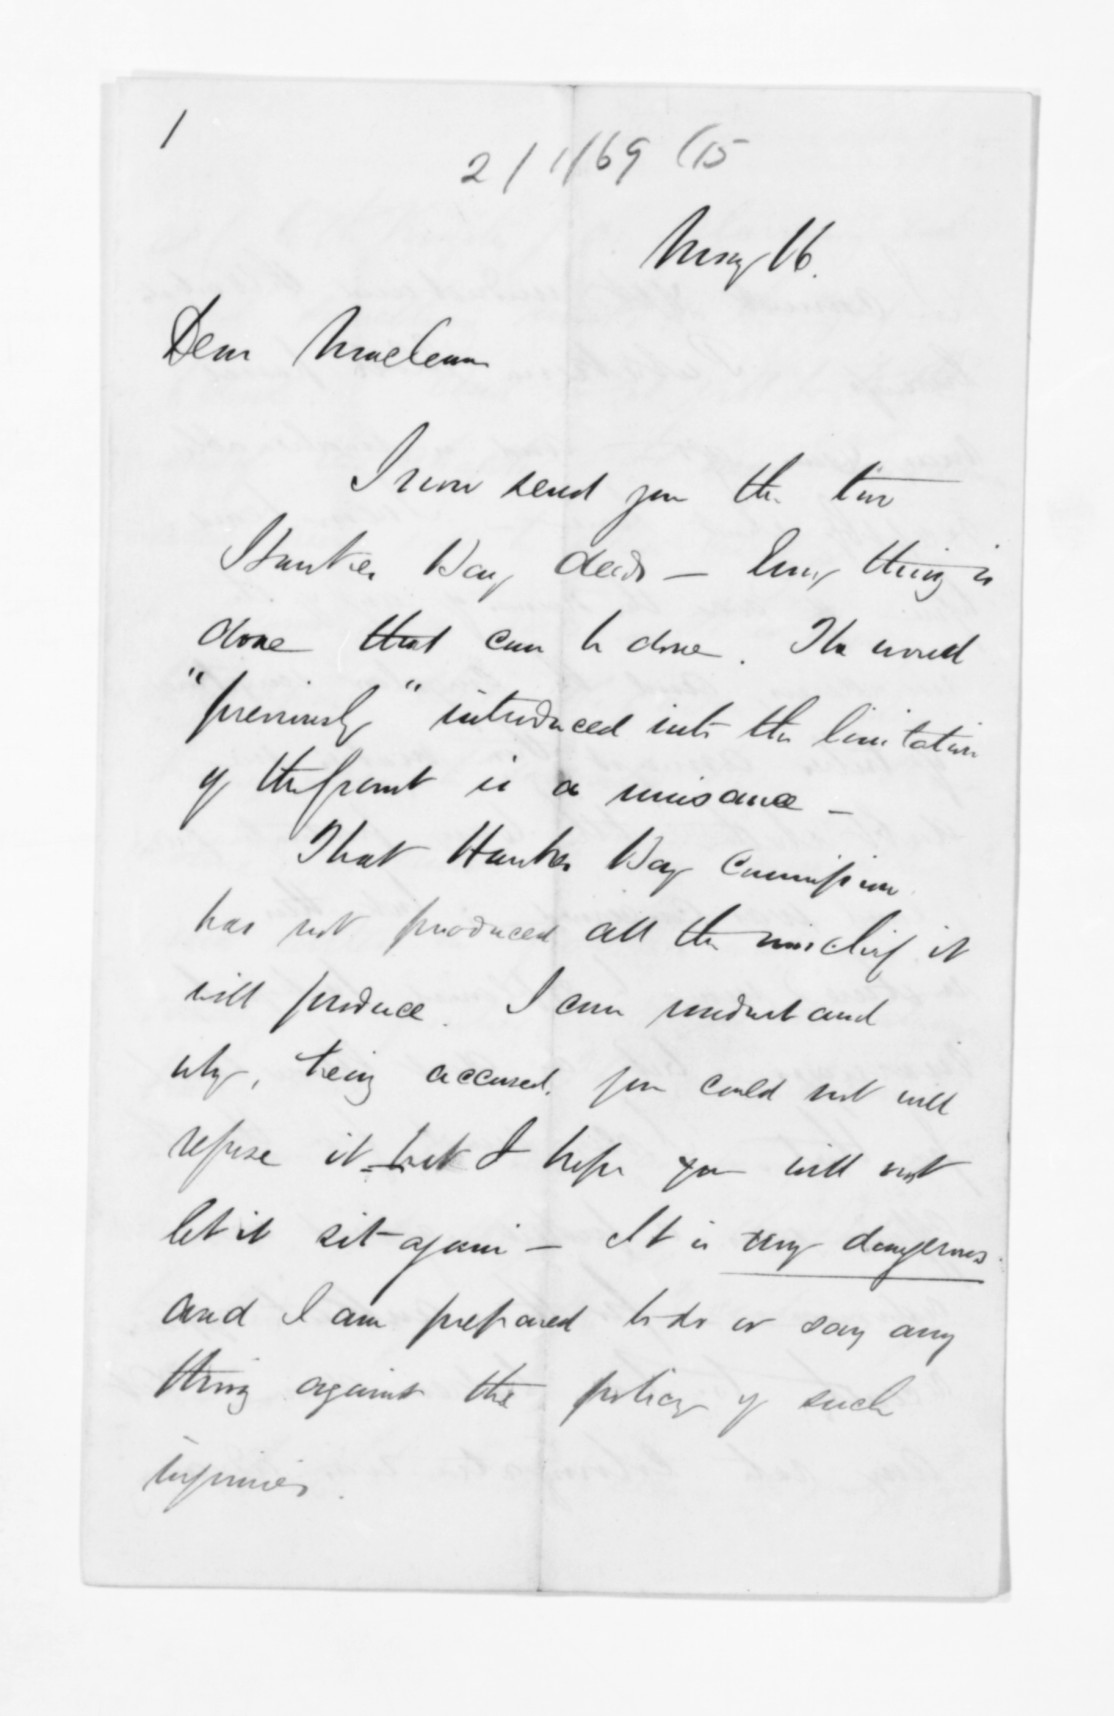 1
2/1/69 (15
May 16.
Dear Maclean
I now send you the two
Hawkes Bay deeds — Every thing is
done that can be done. The word
"previously" introduced into the limitation
of the grant is a nuisance —
That Hawkes Bay Commission
has not produced all the mischief it
will produce. I can understand
why, being accused, you could not well
refuse it but I hope you will not
let it sit again — It is very dangerous.
and I am prepared to do or say any
thing against the policy of such
inquiries.